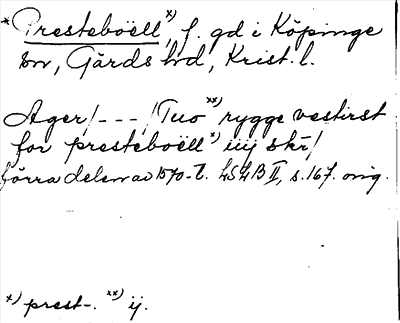 *Presteboëll x), f. gd i Köpinge
sn, Gärds hd, Krist. l.
Ager/---/Tuo xx) rygge vestirst
for presteboëll x) iiij skr/
förra delen av 1570-t. LSLB II, s. 167. orig.
x) prest-. xx) ij.